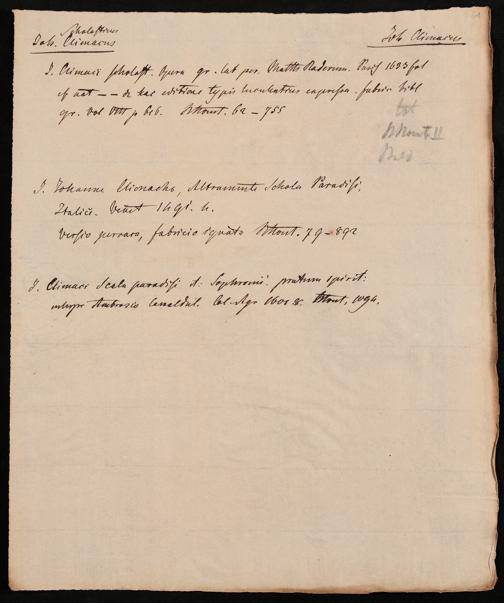 Scholasticus
Joh. Climacus
Joh Climacus
J. Climaci scholast. opera gr. lat per. Matth Raderum. Paris 1633 fol
cf aut — — de hac editione typis expressa. fabric bibl
gr. vol VIII p 616. BMont. 62 – 755
BMont II
J. Johanne Climacho, Altramente Schola Paradisi.
Italice. Venet 1491. 4.
versio perrara, fabricio ignota BMont. 79 – 892
J. Climaci Scala paradisi it: Sophronii pratum spirit:
interpr Ambrosio Camaldul. Col. Agr 1601 8. BMont. 1094.